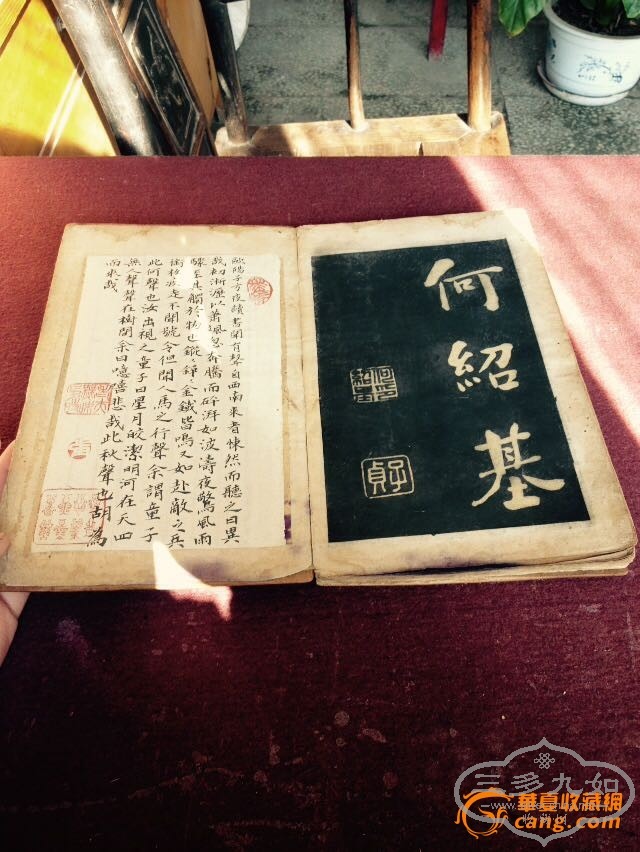 何紹基
子貞
歐陽子方夜讀書聞有聲自西南來者悚然而聽之曰異
哉初淅瀝以蕭颯忽奔騰而砰湃如波濤夜驚風雨
驟至其觸於物也鏦〻錚〻金鐵皆鳴又如赴敵之兵
銜枚疾走不聞號令但聞人馬之行聲余謂童子
此何聲也汝出視之童子曰星月皎潔明河在天四
無人聲聲在樹間余曰噫嘻悲哉此秋聲也胡為
而來哉
三多九如
華夏收藏網
cang.com